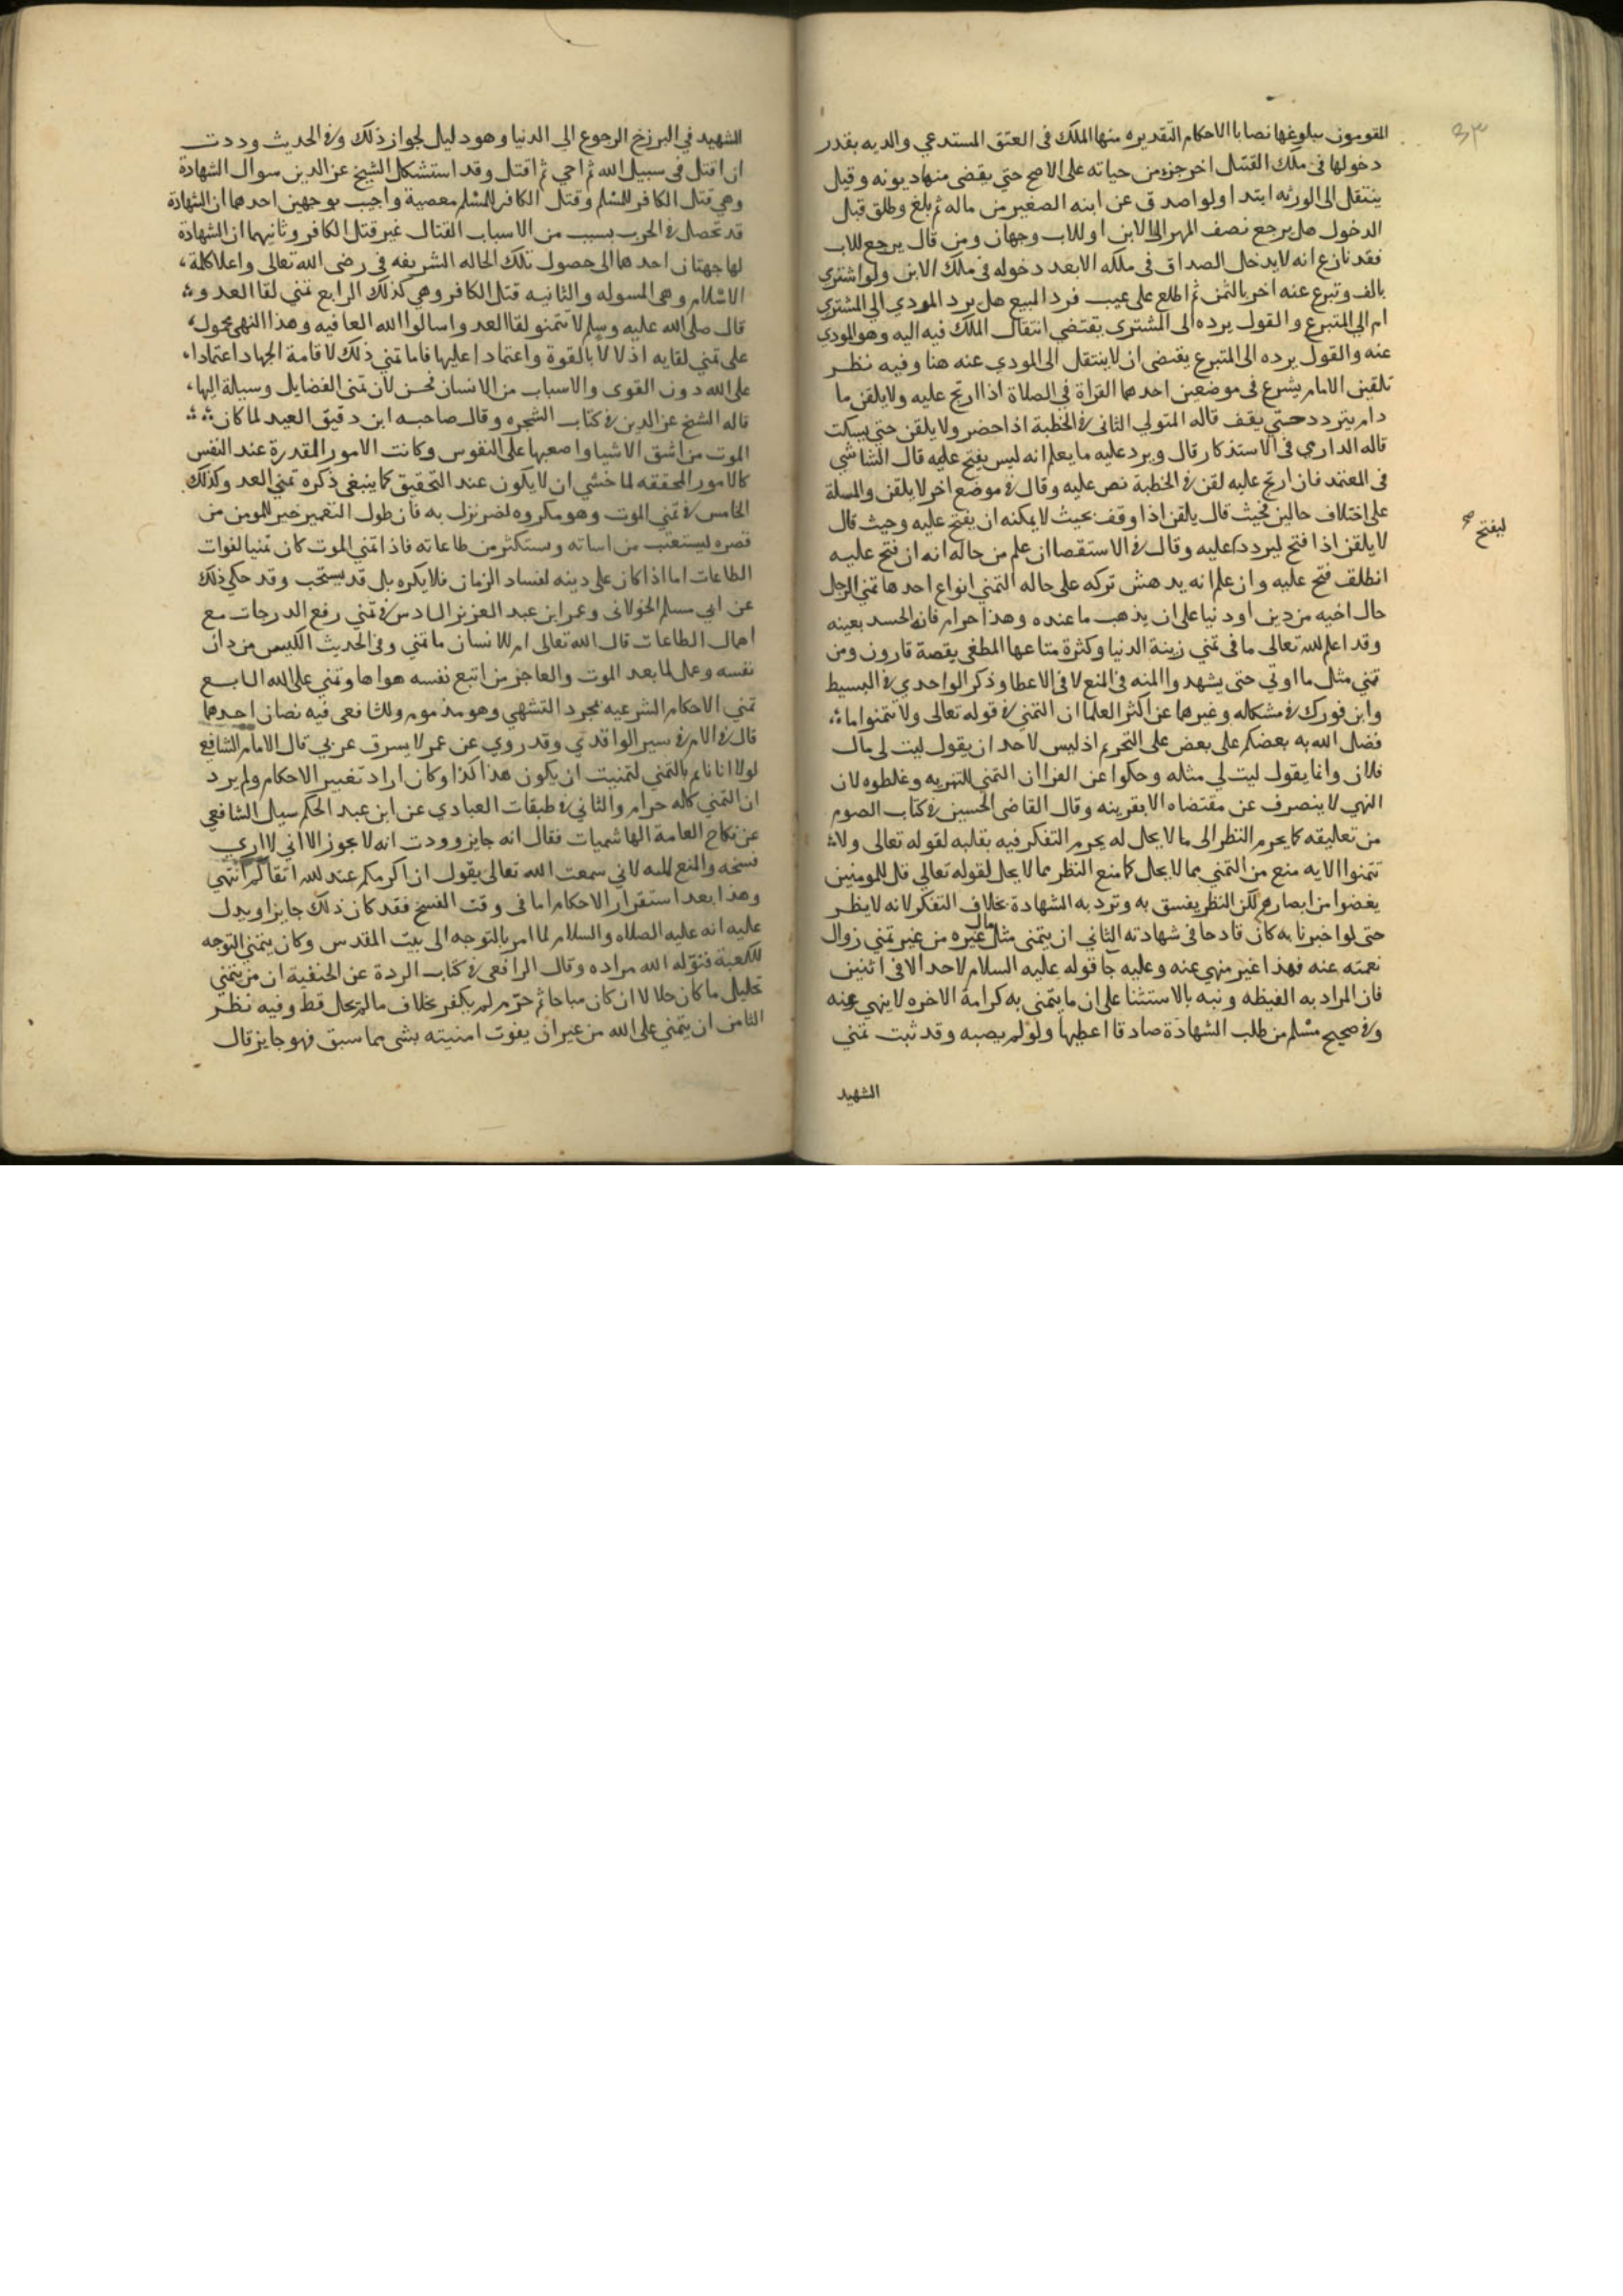 المقومون ببلوغها نصابا الاحكام التقديريه منها الملك فى العتق المستدعي والديه بقدر
دخولها فى ملك القتيل اخر جزء من حياته على الاصح حتي يقضى منها ديونه وقيل
ينتقل الى الورثه ابتدا ولو اصدق عن ابنه الصغير من ماله ثم بلغ وطلق قبل
الدخول هل يرجع نصف المهر الى الابن او للاب وجهان ومن قال يرجع للاب
فقد نازع انه لا يدخل الصداق فى ملكه الا بعد دخوله فى ملك الابن ولو اشتري
بالف وتبرع عنه اخر بالثمن ثم اطلع على عيب فرد المبيع هل يرد المودي الي المشتري
ام الي المتبرع والقول يرده الى المشتري يقتضي انتقال الملك فيه اليه وهو المودي
عنه والقول يرده الى المتبرع يقتضى ان لا ينتقل الى المودي عنه هنا وفيه نظر
تلقين الامام يشرع فى موضعين احدهما القراة في الصلاة اذا ارتج عليه ولا يلقن ما
دام يتردد حتي يقف قاله المتولي الثاني في الخطبة اذا حضر ولا يلقن حتي يسكت
قاله الدارمي في الاستذكار قال ويرد عليه ما يعلم انه ليس يفتح عليه قال الشاشي
في المعتمد فان ارتج عليه لقن في الخطبة نص عليه وقال في موضع اخر لا يلقن والمسلة
على اختلاف حالين فحيث قال يلقن اذا وقف بحيث لا يمكنه ان يفتح عليه وحيث قال
لا يلقن اذا فتح ليردد عليه وقال في الاستقصا ان علم من حاله انه ان فتح عليه
ليفتح صح
انطلق فتح عليه وان علم انه يدهش تركه على حاله التمني انواع احدها تمني الرجل
حال اخيه من دين او دنيا على ان يذهب ما عنده وهذا حرام فانه الحسد بعينه
وقد اعلم الله تعالى ما فى تمني زينة الدنيا وكثرة متاعها المطغي بقصة قارون ومن
تمني مثل ما اوتي حتى يشهدوا المنه فى المنع لا فى الاعطا وذكر الواحدي في البسيط
وابن فورك في مشكله وغيرهما عن اكثر العلما ان التمني في قوله تعالى ولا تتمنوا ما
فضل الله به بعضكم على بعض على التحريم اذ ليس لاحد ان يقول ليت لى مال
فلان وانما يقول ليت لي مثله وحكوا عن الفرا ان التمني للتنزيه وغلطوه لان
النهي لا ينصرف عن مقتضاه الا بقرينه وقال القاضى الحسين في كتاب الصوم
من تعليقه كما يحرم النظر الى ما لا يحل له يحرم التفكر فيه بقلبه لقوله تعالى ولا
تتمنوا الايه منع من التمني بما لا يحل كما منع النظر مما لا يحل لقوله تعالي قل للمومنين
يغضوا من ابصارهم لكن النظر يفسق به وترد به الشهادة بخلاف التفكر لانه لا يظهر
حتى لو اخبرنا به كان قادحا فى شهادته الثاني ان يتمنى مثل مال غيره من غير تمني زوال
نعمته عنه فهذا غير منهي عنه وعليه جا قوله عليه السلام لا حسد الا فى اثنين
فان المراد به الغبطه ونبه بالاستثنا على ان ما يتمنى به كرامة الاخره لا ينهى عنه
وفي صحيح مسلم من طلب الشهادة صادقا اعطيها ولو لم يصبه وقد ثبت تمني
الشهيد
الشهيد في البرزخ الرجوع الى الدنيا وهو دليل لجواز ذلك وفي الحديث وددت
ان اقتل فى سبيل الله ثم احي ثم اقتل وقد استشكل الشيخ عز الدين سوال الشهادة
وهي قتل الكافر للمسلم وقتل الكافر المسلم معصية واجيب بوجهين احدهما ان الشهادة
قد تحصل في الحرب بسبب من الاسباب القتال غير قتل الكافر وثانيهما ان الشهادة
لها جهتان احدهما الى حصول تلك الحاله الشريفه في رضى الله تعالى واعلا كلمة
الاسلام وهى المسوله والثانيه قتل الكافر وهي كذلك الرابع تمني لقا العدو
قال صلى الله عليه وسلم لا تتمنوا لقا العدو واسالوا الله العافيه وهذا النهى محمول
على تمني لقايه اذلالا بالقوة واعتمادا عليها فاما تمني ذلك لاقامة الجهاد اعتمادا
على الله دون القوى والاسباب من الانسان فحسن لان تمنى الفضايل وسيلة اليها
قاله الشيخ عز الدين في كتاب الشجره وقال صاحبه ابن دقيق العيد لما كان
الموت من اشق الاشيا واصعبها على النفوس وكانت الامور المقدرة عند النفس
كالامور المحققه لما خشي ان لا يكون عند التحقيق كما ينبغي ذكره تمني العدو كذلك
الخامس في تمني الموت وهو مكروه لضر نزل به فان طول التعمير خير للمومن من
قصره ليستعتب من اساته ويستكثر من طاعاته فاذا تمني الموت كان تمنيا لفوات
الطاعات اما اذا كان على دينه لفساد الزمان فلا يكره بل قد يستحب وقد حكي ذلك
عن ابي مسلم الخولاني وعمر ابن عبد العزيز السادس في تمني رفع الدرجات مع
اهمال الطاعات قال الله تعالى ام للانسان ما تمني وفى الحديث الكيس من دان
نفسه وعمل لما بعد الموت والعاجز من اتبع نفسه هواها وتمني على الله السابع
تمني الاحكام الشرعيه بمجرد التشهي وهو مذموم وللشافعي فيه نصان احدهما
قال في الام في سير الواقدي وقد روي عن عمر لا يسرق عربي قال الامام الشافعي
لولا انا ناثم بالتمني لتمنيت ان يكون هذا كذا وكان اراد تغيير الاحكام ولم يرد
ان التمني كله حرام والثاني في طبقات العبادي عن ابن عبد الحكم سيل الشافعي
عن نكاح العامة الهاشميات فقال انه جايز وودت انه لا يجوز الا اني لا اري
فسخه والمنع لله لاني سمعت الله تعالى يقول ان اكرمكم عند الله اتقاكم انتهي
وهذا بعد استقرار الاحكام اما في وقت الفسخ فقد كان ذلك جايزا ويدل
عليه انه عليه الصلاه والسلام لما امر بالتوجه الى بيت المقدس وكان يتمني التوجه
للكعبة فنوله الله مراده وقال الرافعي في كتاب الردة عن الحنفية ان من تمني
تحليل ما كان حلالا ان كان مباحا ثم حرم لم يكفر بخلاف ما لم يحل قط وفيه نظر
الثامن ان يتمني على الله من غير ان يفوت امنيته بشى مما سبق فهو جايز قال